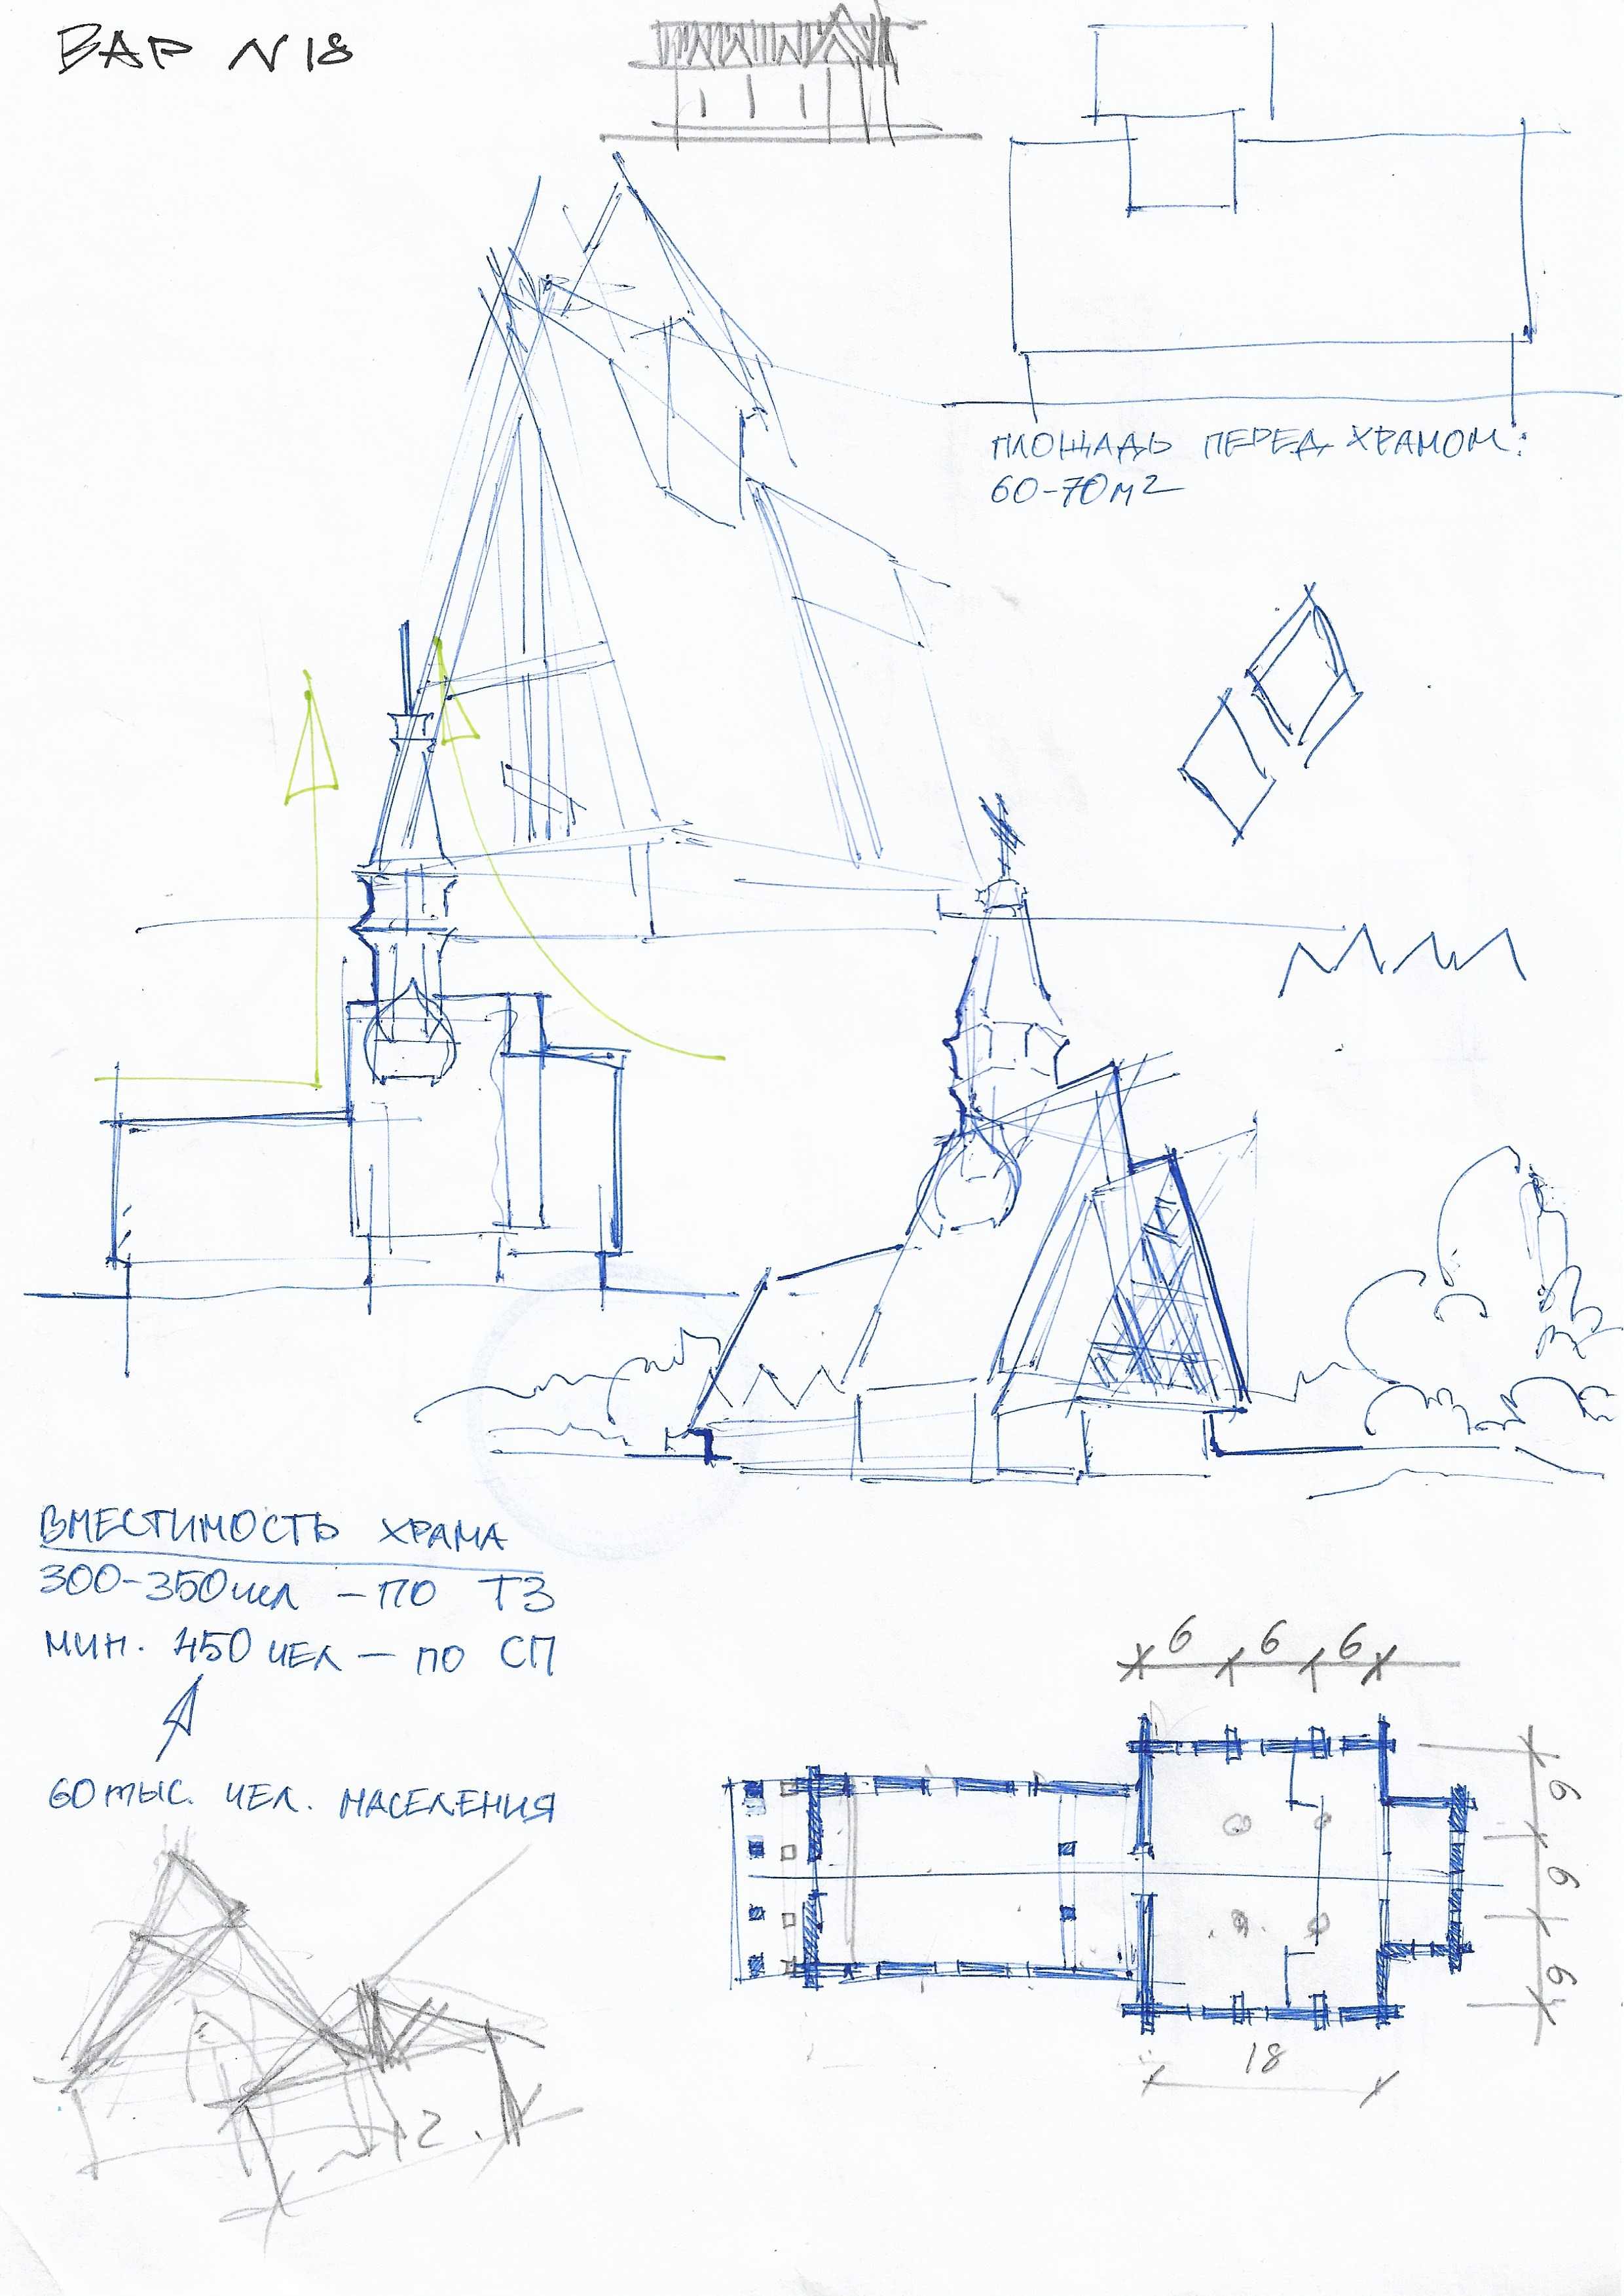 ВАР N18
ПЛОЩАДЬ ПЕРЕД ХРАМОМ:
60-70м2
ВМЕСТИМОСТЬ ХРАМА
300-350чел - ПО ТЗ
МИН. 450 ЧЕЛ - ПО СП
60 тыс. ЧЕЛ. НАСЕЛЕНИЯ
6 6 6
6
6
6
18
~12.